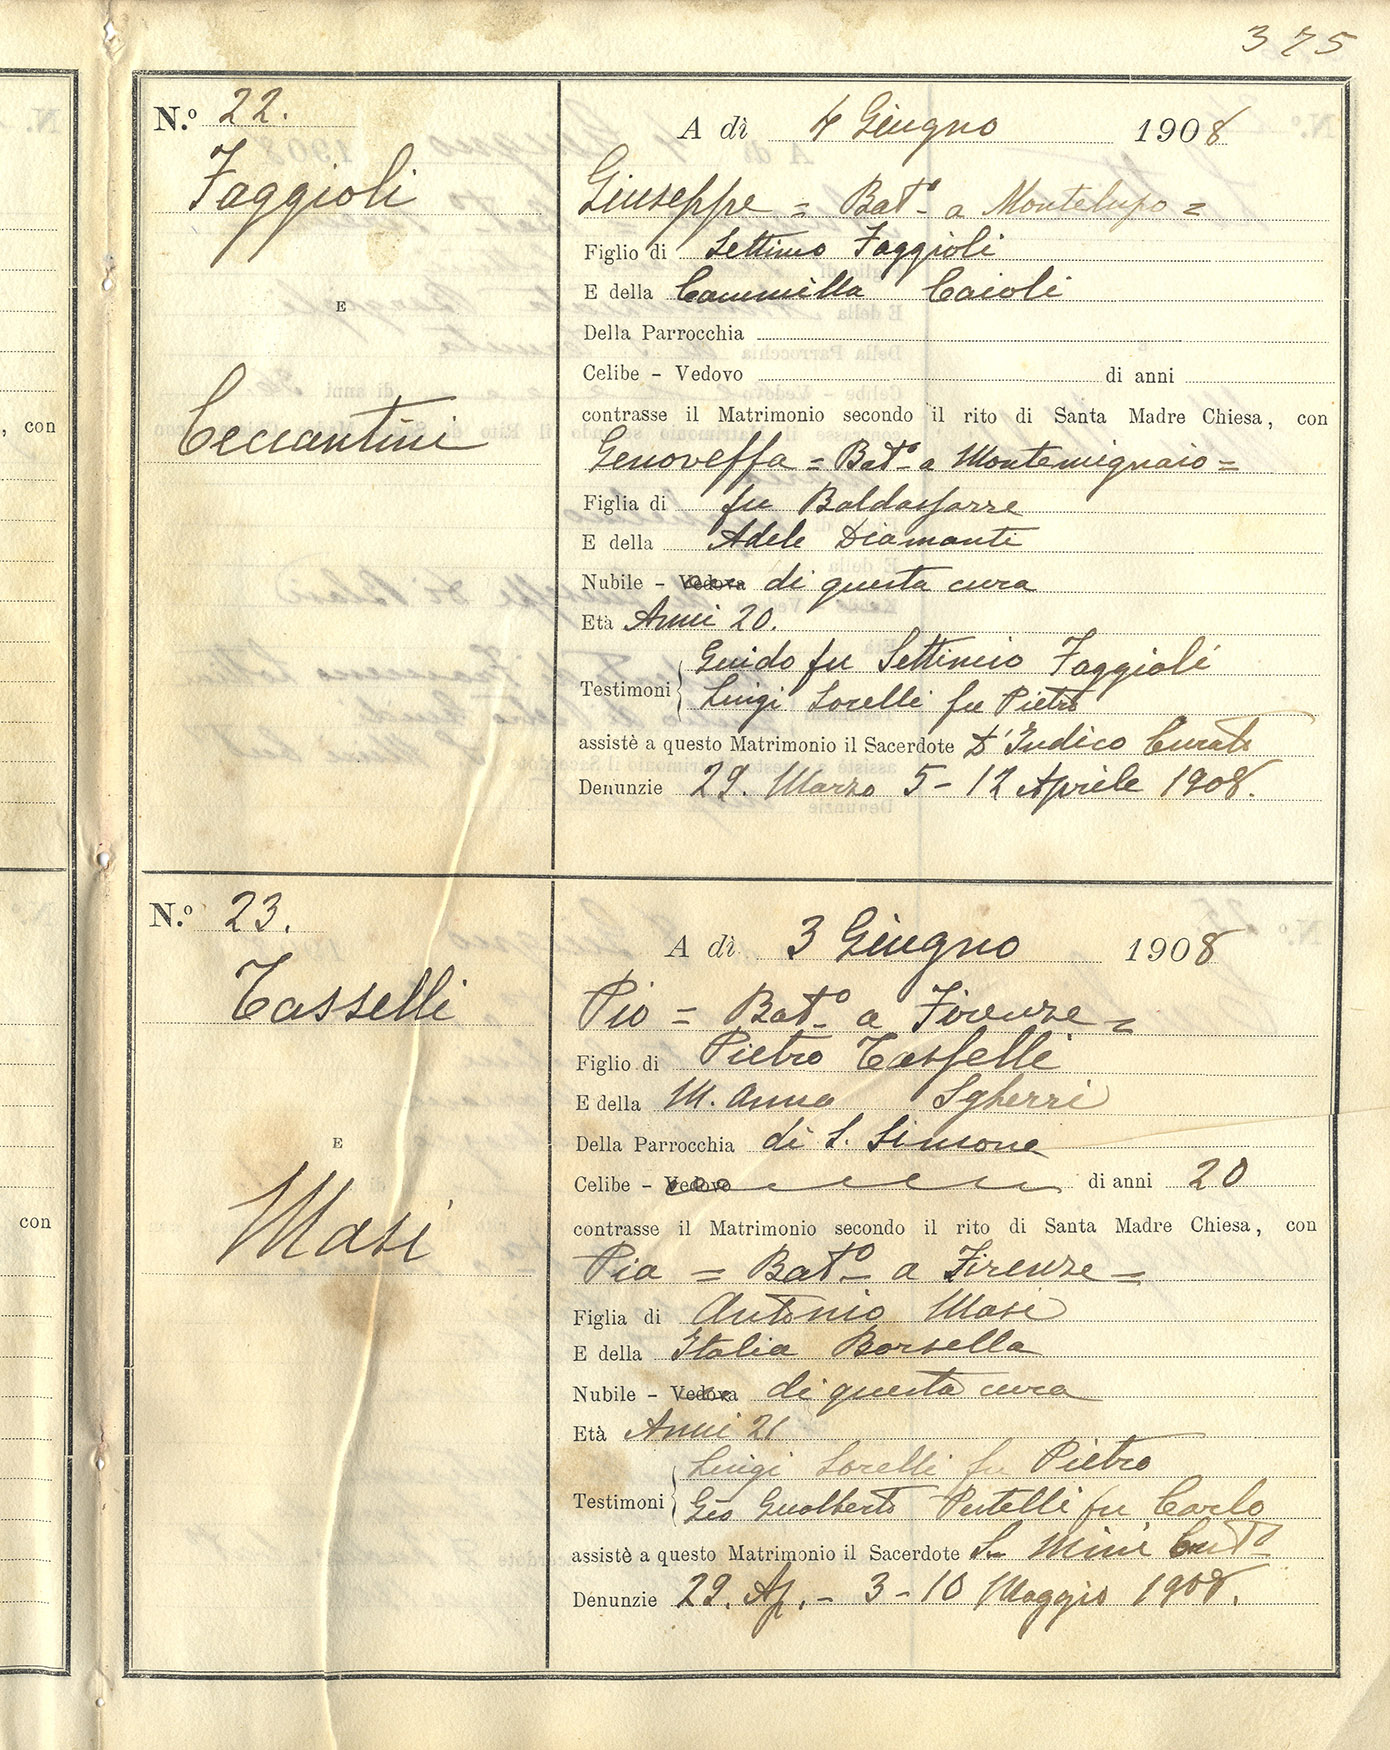 375
N.º 22.
Faggioli
E
Ceccantini
A dì 4 Giugno 1908
Giuseppe = Batº a Montelupo =
Figlio di Settimo Faggioli
E della Cammilla Caioli
Della Parrocchia
Celibe - Vedovo di anni
contrasse il Matrimonio secondo il rito di Santa Madre Chiesa, con
Genoveffa = Batº a Montemignaio =
Figlia di fu Baldassarre
E della Adele Diamanti
Nubile - Vedova di questa cura
Età Anni 20.
Testimoni Guido fu Settimio Faggioli
Luigi Sorelli fu Pietro
assistè a questo Matrimonio il Sacerdote D'Indico Curato
Denunzie 29. Marzo 5 - 12 Aprile 1908.
N.º 23.
Tasselli
E
Masi
A dì 3 Giugno 1908
Pio = Batº a Firenze =
Figlio di Pietro Tasselli
E della M. Anna Sgherri
Della Parrocchia di S. Simone
Celibe - Vedovo di anni 20
contrasse il Matrimonio secondo il rito di Santa Madre Chiesa, con
Pia = Batº a Firenze =
Figlia di Antonio Masi
E della Italia Borsella
Nubile - Vedova di questa cura
Età Anni 21
Testimoni Luigi Sorelli fu Pietro
Gio Gualberto fu Carlo
assistè a questo Matrimonio il Sacerdote Mini
Denunzie 29. Ap. - 3 - 10 Maggio 1908.
, con
con